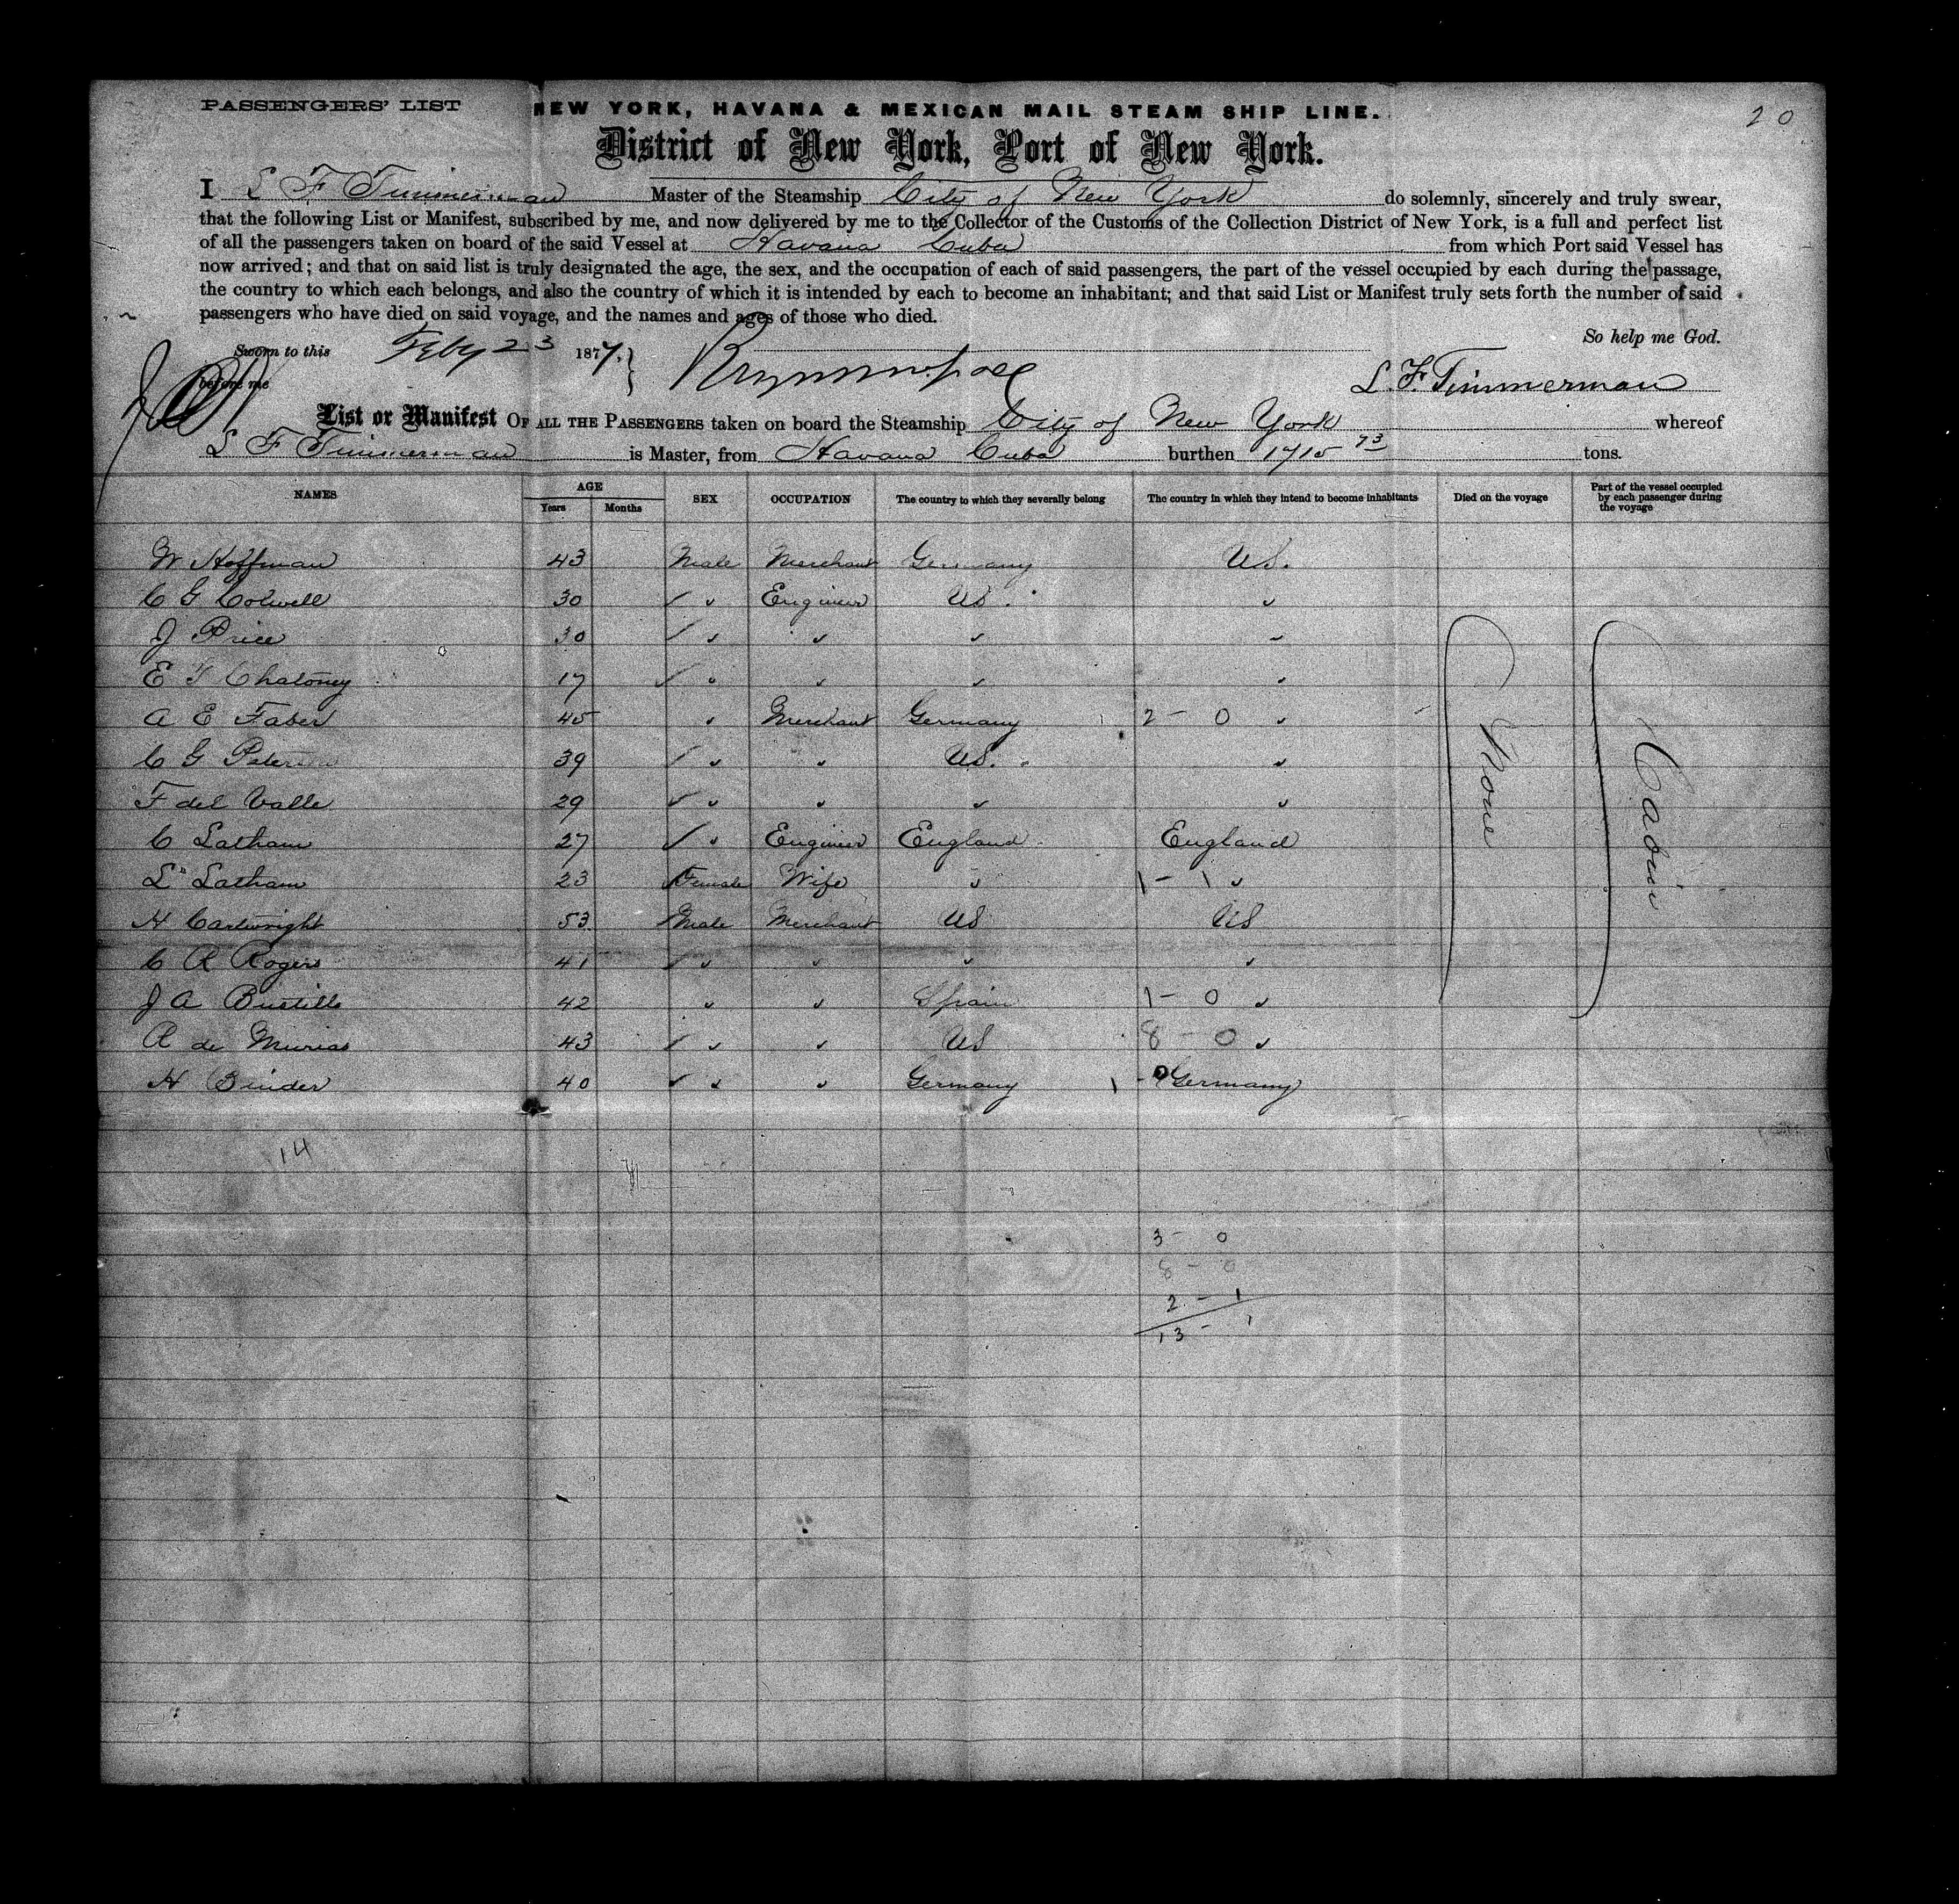 PASSENGERS' LIST
NEW YORK, HAVANA & MEXICAN MAIL STEAM SHIP LINE.
20
District of New York, Port of New York.
I L F Timmerman Master of the Steamship City of New York do solemnly, sincerely and truly swear,
that the following List or Manifest, subscribed by me, and now delivered by me to the Collector of the Customs of the Collection District of New York, is a full and perfect list
of all the passengers taken on board of the said Vessel at Havana Cuba from which Port said Vessel has
now arrived; and that on said list is truly designated the age, the sex, and the occupation of each of said passengers, the part of the vessel occupied by each during the passage,
the country to which each belongs, and also the country of which it is intended by each to become an inhabitant; and that said List or Manifest truly sets forth the number of said
passengers who have died on said voyage, and the names and ages of those who died.
So help me God.
Sworn to this Feby 23 1877.
before me
L. F. Timmerman
List or Manifest OF ALL THE PASSENGERS taken on board the Steamship City of New York whereof
L F Timmerman is Master, from Havana Cuba burthen 1715 73 tons.
NAMES AGE Years Months SEX OCCUPATION The country to which they severally belong The country in which they intend to become inhabitants Died on the voyage Part of the vessel occupied by each passenger during the voyage
W Hoffman 43 Male Merchant Germany US.
C G Colwell 30 " Engineer US. "
J Price 30 " " " "
E T Chatoney 17 " " " "
A E Faber 45 " Merchant Germany 2 - 0 "
C G Peterson 39 " " US. "
F del Valle 29 " " " "
C Latham 27 " Engineer England England
L" Latham 23 Female Wife " 1 - 1 "
H Cartwright 53 Male Merchant US US
C R Rogers 41 " " " "
J A Bustillo 42 " " Spain 1 - 0 "
R de Murias 43 " " US 8 - 0 "
H Binder 40 " " Germany 1 - 0 Germany
None
Cabin
14
3 - 0
8 - 0
2 - 1
13 - 1